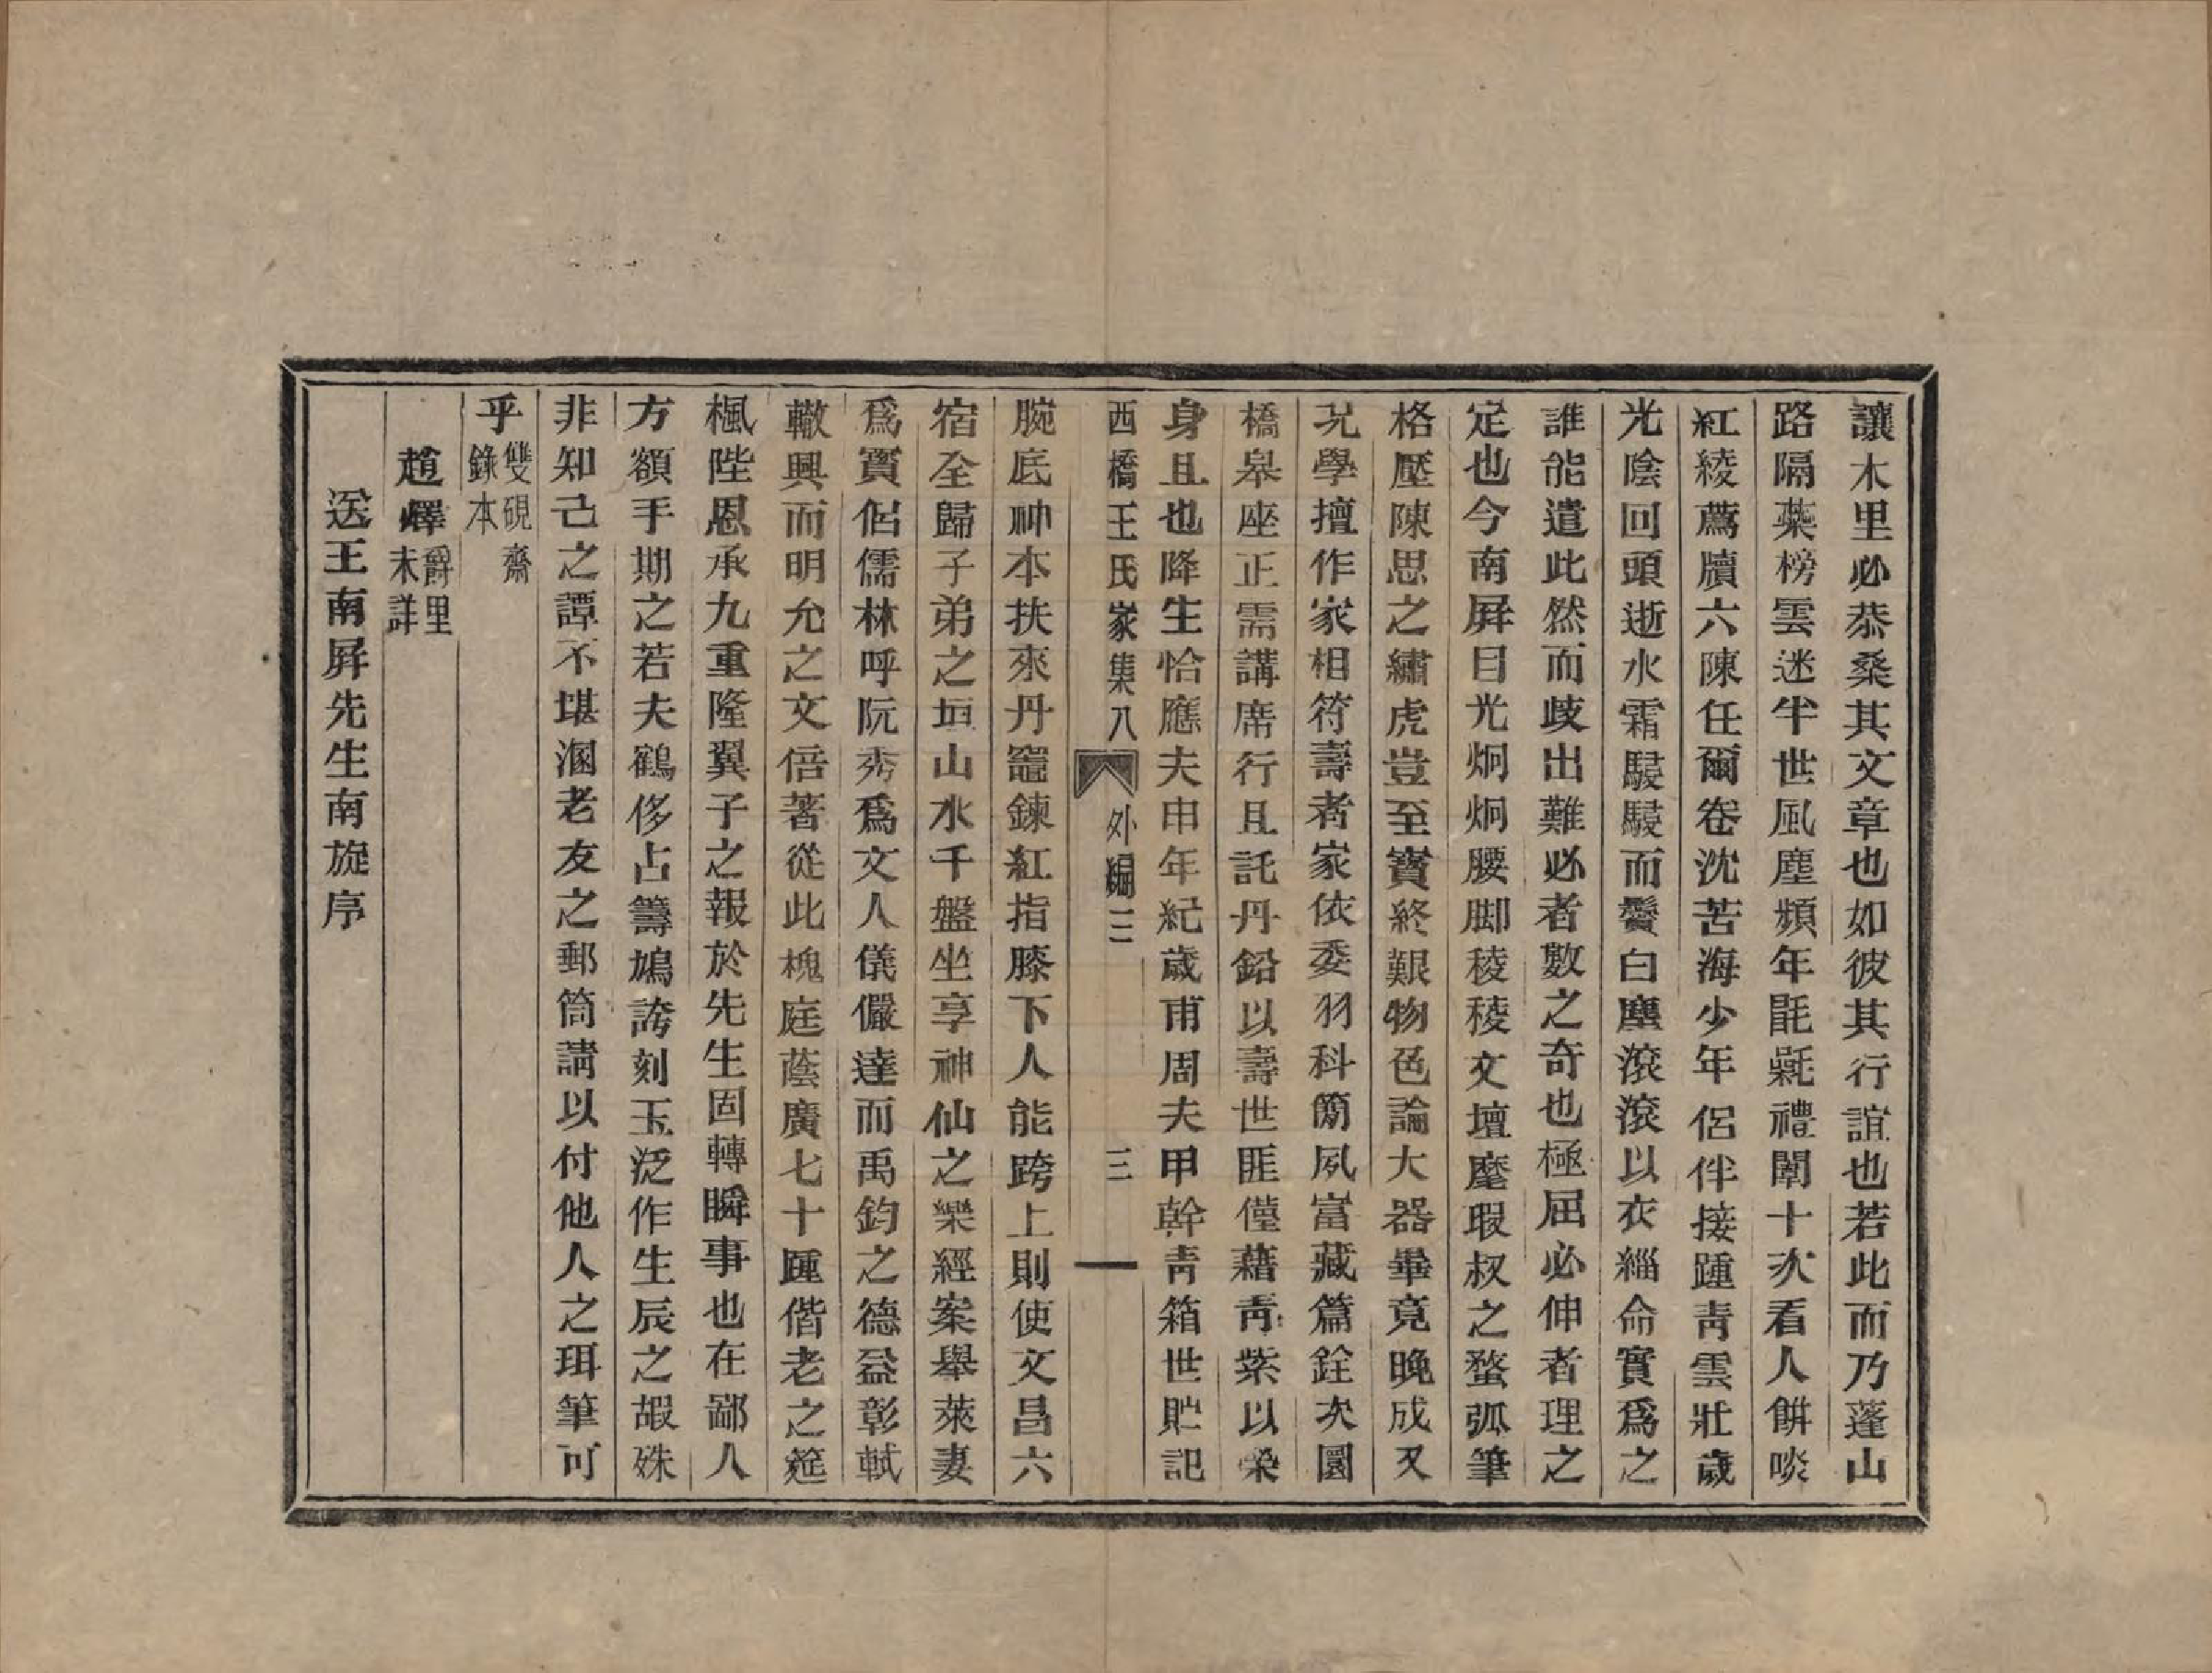 讓木里必恭桑其文章也如彼其行誼也若此而乃蓬山
路隔蘂榜雲迷半世風塵頻年毷氉禮闈十次看人餅啖
紅綾薦牘六陳任爾卷沈苦海少年侶伴接踵青雲壯歲
光陰回頭逝水霜騣騣而鬢白塵滾滾以衣緇命實爲之
誰能遣此然而歧出難必者數之奇也極屈必伸者理之
定也今南屏目光炯炯腰脚稜稜文壇麾瑕叔之蝥弧筆
格壓陳思之繡虎豈至寶終艱物色論大器畢竟晚成又
况學擅作家相符壽者家依委羽科簡夙富藏篇銓次圜
橋皋座正需講席行且託丹鉛以壽世匪僅藉青紫以榮
身且也降生恰應夫申年紀歲甫周夫甲幹青箱世貯記
西橋王氏家集八 外編三 三
腕底神本扶來丹竈鍊紅指膝下人能跨上則使文昌六
宿全歸子弟之垣山水千盤坐享神仙之樂經案舉萊妻
爲賓侶儒林呼阮秀爲文人儀儼達而禹鈞之德益彰軾
轍興而明允之文倍著從此槐庭蔭廣七十踵偕老之筵
楓陛恩承九重隆翼子之報於先生固轉瞬事也在鄙人
方額手期之若夫鶴侈占籌鳩誇刻玉泛作生辰之嘏殊
非知己之譚不堪溷老友之郵筒請以付他人之珥筆可
乎雙硯齋錄本
趙㷿爵里未詳
送王南屏先生南旋序